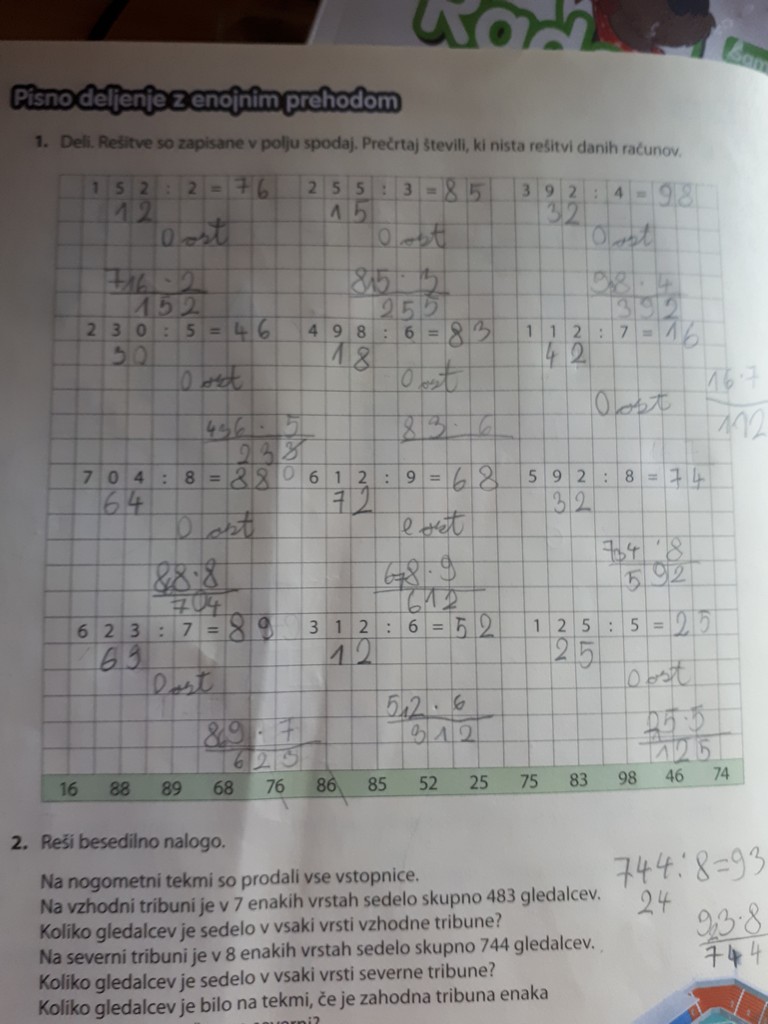 Rad
Pisno deljenje z enojnim prehodom
1. Deli. Rešitve so zapisane v polju spodaj. Prečrtaj števili, ki nista rešitvi danih računov.
152 : 2 = 76 255 : 3 = 85 392 : 4 = 98
12 15 32
0 ost 0 ost 0 ost
716 · 2 85 · 3 98 · 4
152 255 392
230 : 5 = 46 498 : 6 = 83 112 : 7 = 16
30 18 42
0 ost 0 ost 0 ost 16·7
436 · 5 83 · 6 112
704 : 8 = 88 0 612 : 9 = 68 592 : 8 = 74
64 72 32
0 ost 0 ost
88·8 678·9 734 · 8
704 612 592
623 : 7 = 89 312 : 6 = 52 125 : 5 = 25
63 12 25
0 ost 0 ost
89 · 7 52 · 6 25·5
623 312 125
16 88 89 68 76 86 85 52 25 75 83 98 46 74
2. Reši besedilno nalogo.
Na nogometni tekmi so prodali vse vstopnice.
Na vzhodni tribuni je v 7 enakih vrstah sedelo skupno 483 gledalcev.
Koliko gledalcev je sedelo v vsaki vrsti vzhodne tribune?
Na severni tribuni je v 8 enakih vrstah sedelo skupno 744 gledalcev.
Koliko gledalcev je sedelo v vsaki vrsti severne tribune?
Koliko gledalcev je bilo na tekmi, če je zahodna tribuna enaka
744 : 8 = 93
24
93·8
744